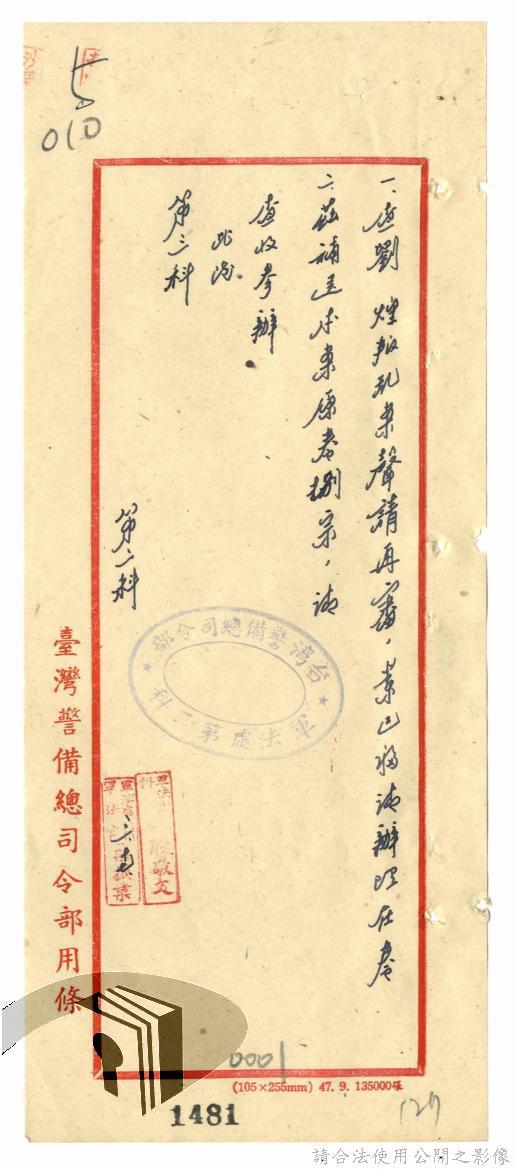 010
一、查劉煌叛亂案聲請再審，業已移請辦理在卷
二、茲補送本案原卷捌宗，請
查收參辦
此致
第三科
第二科
台灣警備總司令部
軍法處第二科
臺灣警備總司令部用條
0001
(105×255mm) 47. 9. 135000
1481
127
請合法使用公開之影像